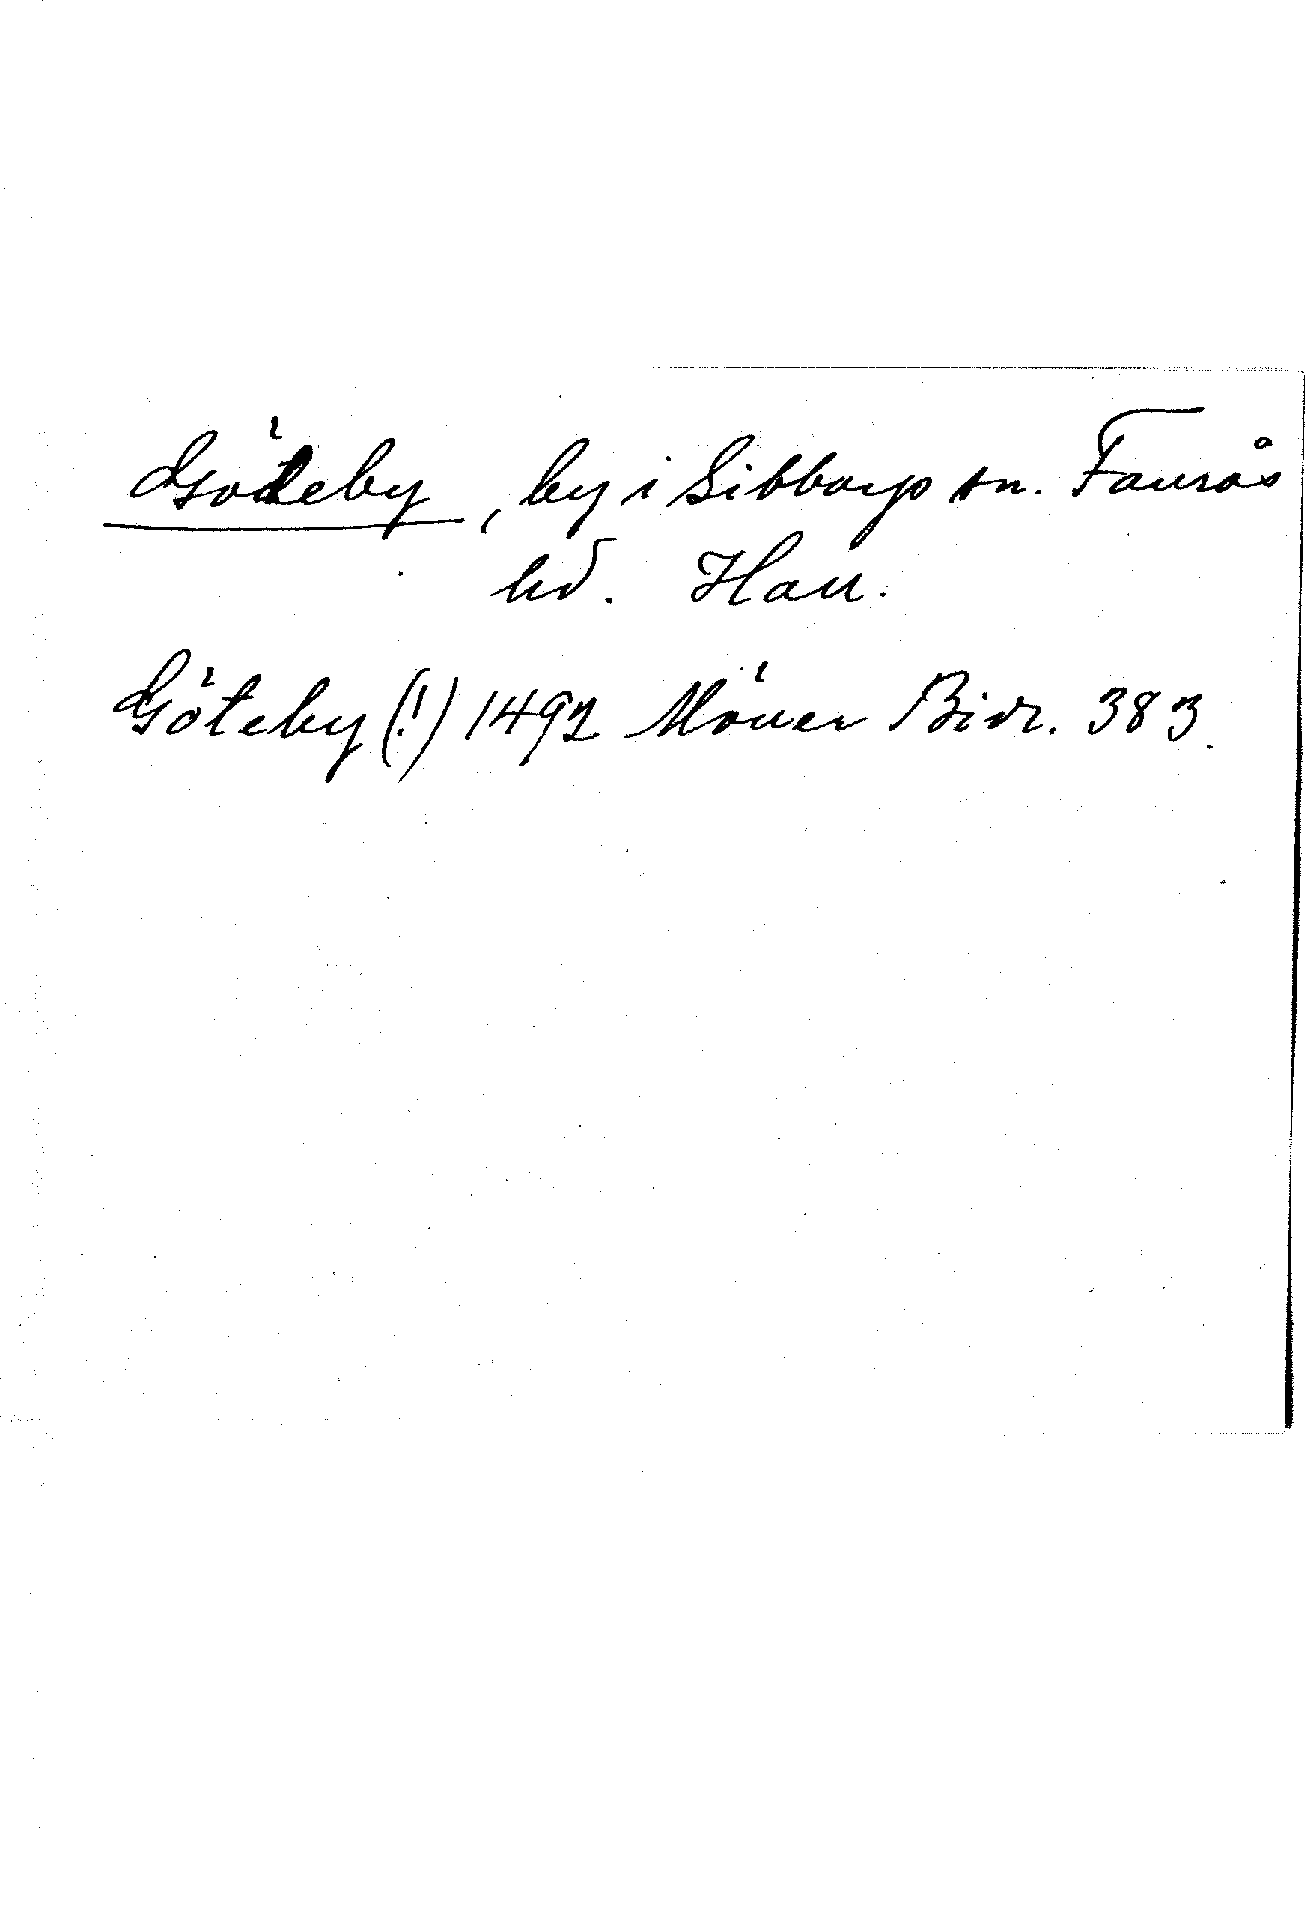 Göteby, by i Sibbarp sn. Faurås
hd. Hall.
Göteby (!) 1492 Mörner Bidr. 383.